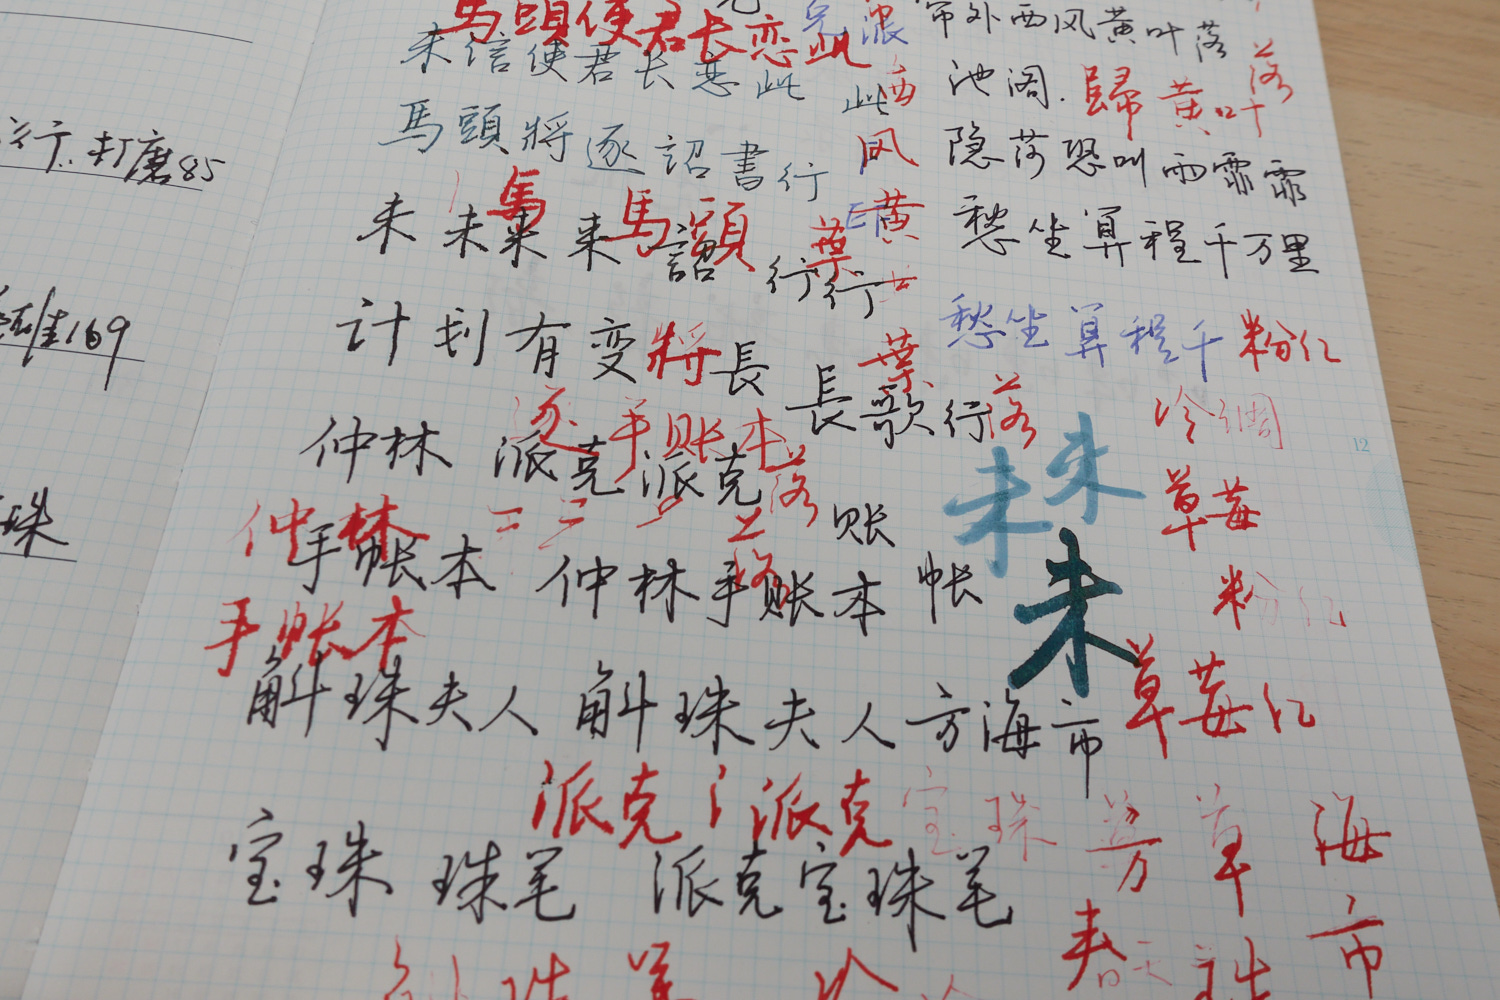 打磨85
169
珠
馬頭使君长恋此
未信使君长恋此
馬頭將逐詔書行
帘外西风黄叶落
池阁
歸黄叶
落
隐莎恐叫雨霏霏
愁坐算程千万里
愁坐算程千
粉红
此
西
风
黄
未未来来
馬
馬頭
詔
葉
行行
计划有变
將
長
葉
長歌行
落
冷
草莓
粉红
草莓红
逐手账本
仲林 派克派克
落
仲林
手帐本
仲林手账本
账
帐
落
未未
未
12
手账本
斛珠夫人 斛珠夫人 方海市
派克 派克
宝珠
芳草
海市
宝珠 珠笔 派克宝珠笔
春天
珠笔